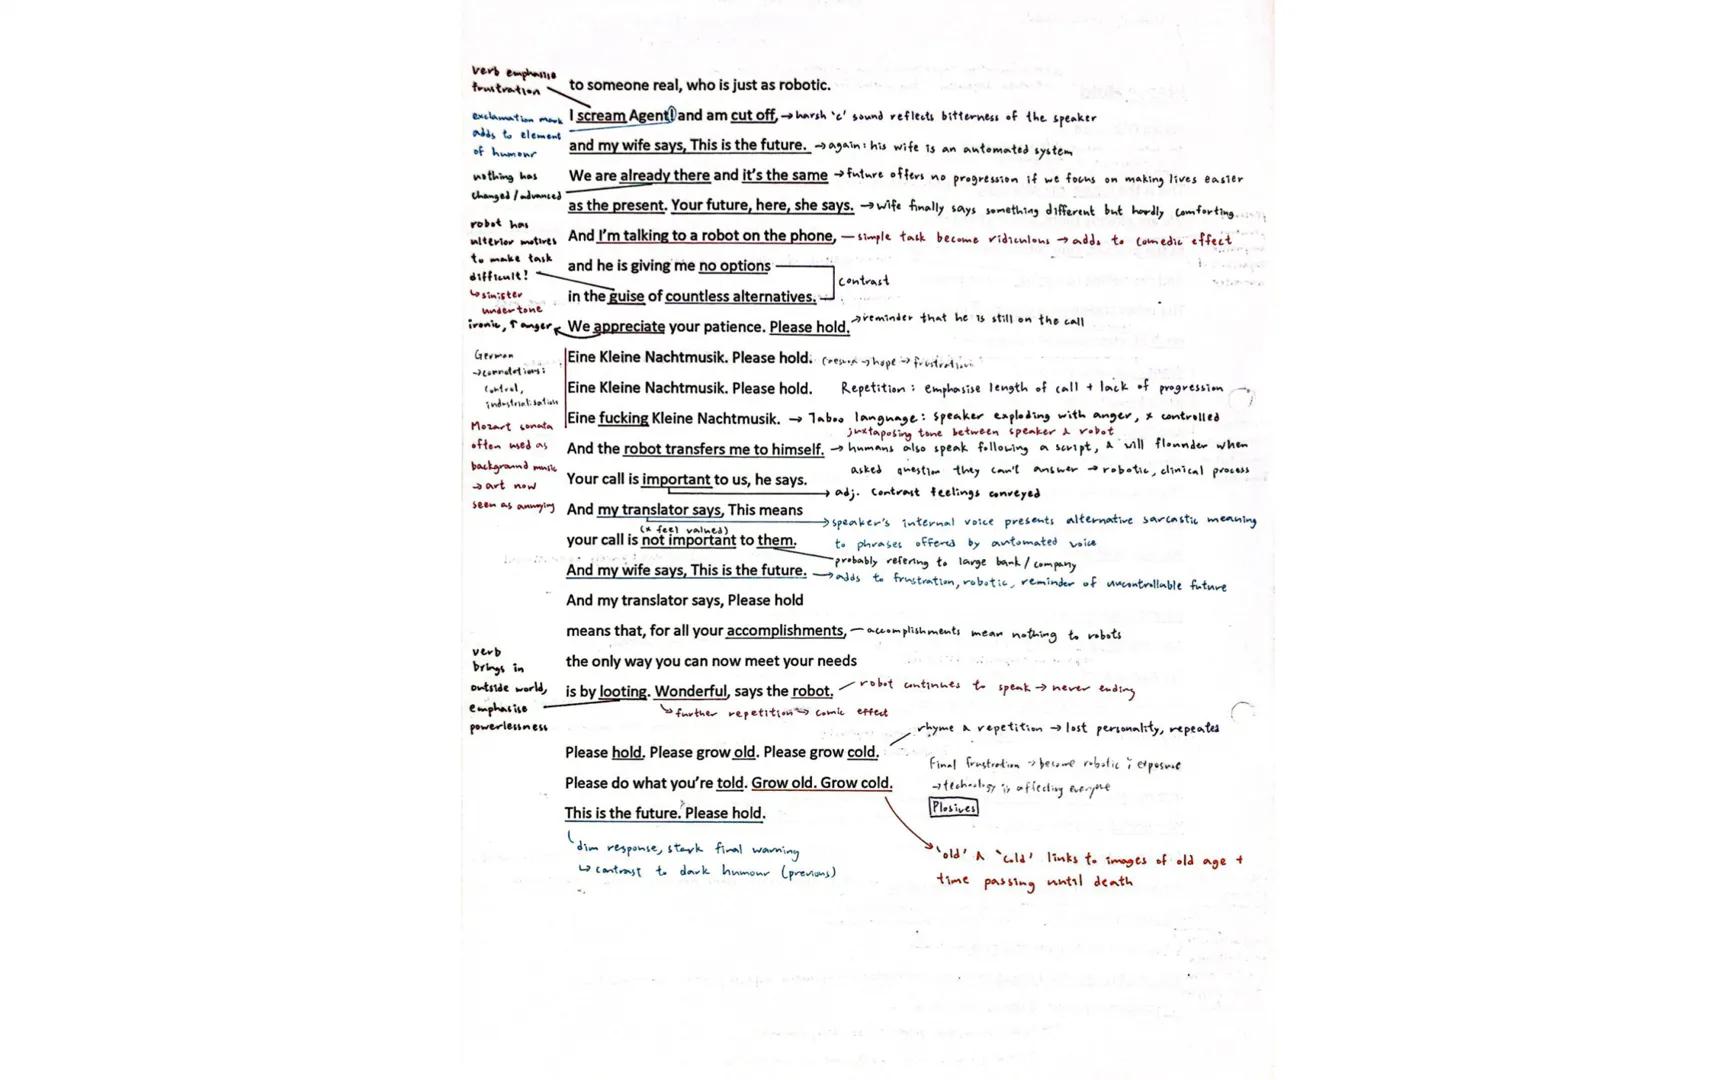 verb emphasise
frustration
to someone real, who is just as robotic.
I scream Agent! and am cut off, → harsh 'c' sound reflects bitterness of the speaker
exclamation mark
adds to element
of humour
and my wife says, This is the future. → again: his wife is an automated system
nothing has
changed/advanced
We are already there and it's the same → future offers no progression if we focus on making lives easier
as the present. Your future, here, she says. → wife finally says something different but hardly comforting
robot has
ulterior motives
to make task
difficult!
↳ sinister
undertone
And I'm talking to a robot on the phone, — simple task become ridiculous → adds to comedic effect
and he is giving me no options
contrast
in the guise of countless alternatives.
ironic, ↑ anger
We appreciate your patience. Please hold. → reminder that he is still on the call
German
→ connotations:
control,
industrialisation
Eine Kleine Nachtmusik. Please hold. → hope → frustration
Eine Kleine Nachtmusik. Please hold. Repetition: emphasise length of call + lack of progression
Eine fucking Kleine Nachtmusik. → Taboo language: speaker exploding with anger, x controlled
juxtaposing tone between speaker & robot
Mozart sonata
often used as
background music
→ art now
seen as annoying
And the robot transfers me to himself. → humans also speak following a script, & will flounder when
asked question they can't answer → robotic, clinical process
Your call is important to us, he says.
→ adj. contrast feelings conveyed
And my translator says, This means
→ speaker's internal voice presents alternative sarcastic meaning
to phrases offered by automated voice
(x feel valued)
your call is not important to them.
probably refering to large bank/company
And my wife says, This is the future. → adds to frustration, robotic, reminder of uncontrollable future
And my translator says, Please hold
means that, for all your accomplishments, — accomplishments mean nothing to robots
the only way you can now meet your needs
verb
brings in
outside world,
emphasise
powerlessness
is by looting. Wonderful, says the robot. robot continues to speak → never ending
↳ further repetition → comic effect
rhyme & repetition → lost personality, repeated
Please hold. Please grow old. Please grow cold.
Final frustration → become robotic ; exposure
→ technology is affecting everyone
Please do what you're told. Grow old. Grow cold.
Plosives
This is the future. Please hold.
dim response, stark final warning
↳ contrast to dark humour (previous)
'old' & 'cold' links to images of old age +
time passing until death